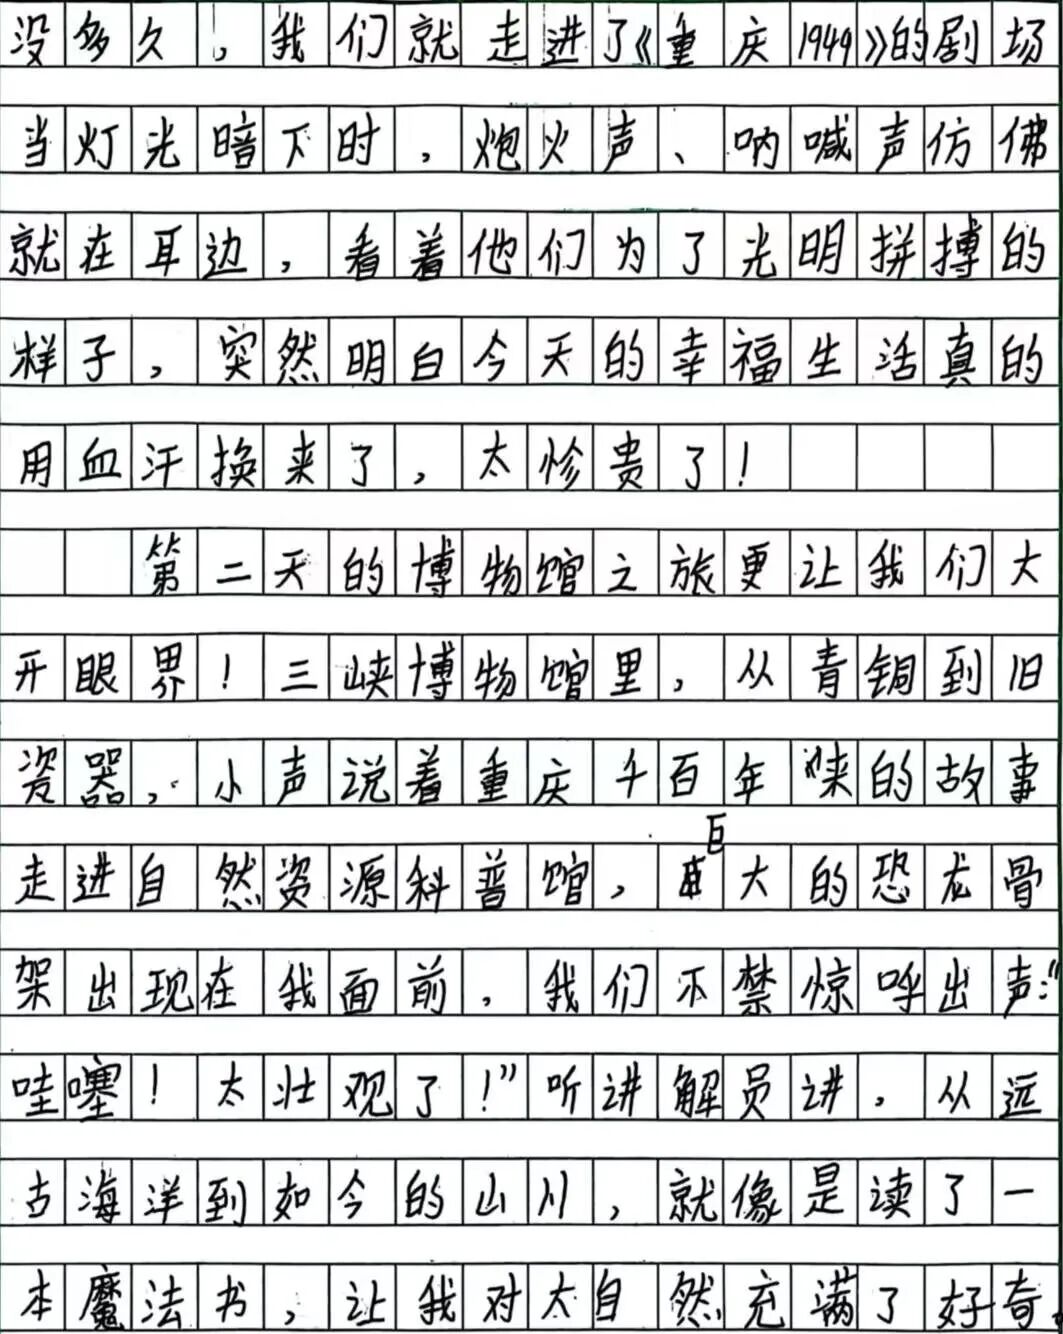 没多久，我们就走进了《重庆1949》的剧场
当灯光暗下时，炮火声、呐喊声仿佛
就在耳边，看着他们为了光明拼搏的
样子，突然明白今天的幸福生活真的
用血汗换来了，太惨贵了！
第二天的博物馆之旅更让我们大
开眼界！三峡博物馆里，从青铜到旧
瓷器，小声说着重庆千百年来的故事
走进自然资源科普馆，巨大的恐龙骨
架出现在我面前，我们不禁惊呼出声：“
哇噻！太壮观了！”听讲解员讲，从远
古海洋到如今的山川，就像是读了一
本魔法书，让我对大自然充满了好奇